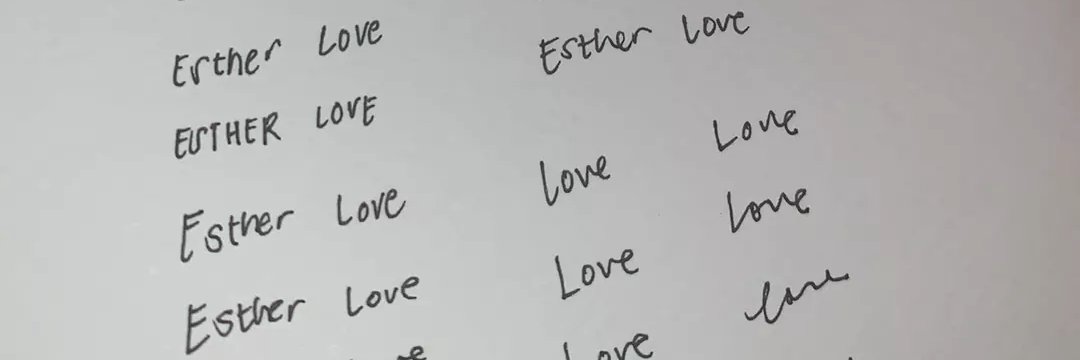 Esther Love Esther Love
ESTHER LOVE Love
Esther Love love love
Esther Love Love love
Love